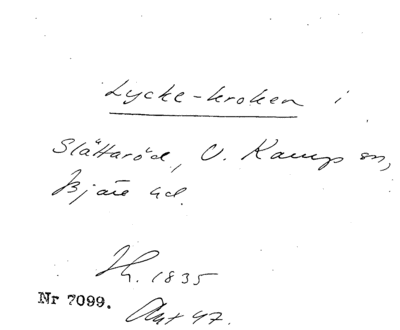 Lycke-kroken i
Slättaröd, V. Karup sn,
Bjäre hd.
Th. 1835
Nr 7099.
Ant 47.